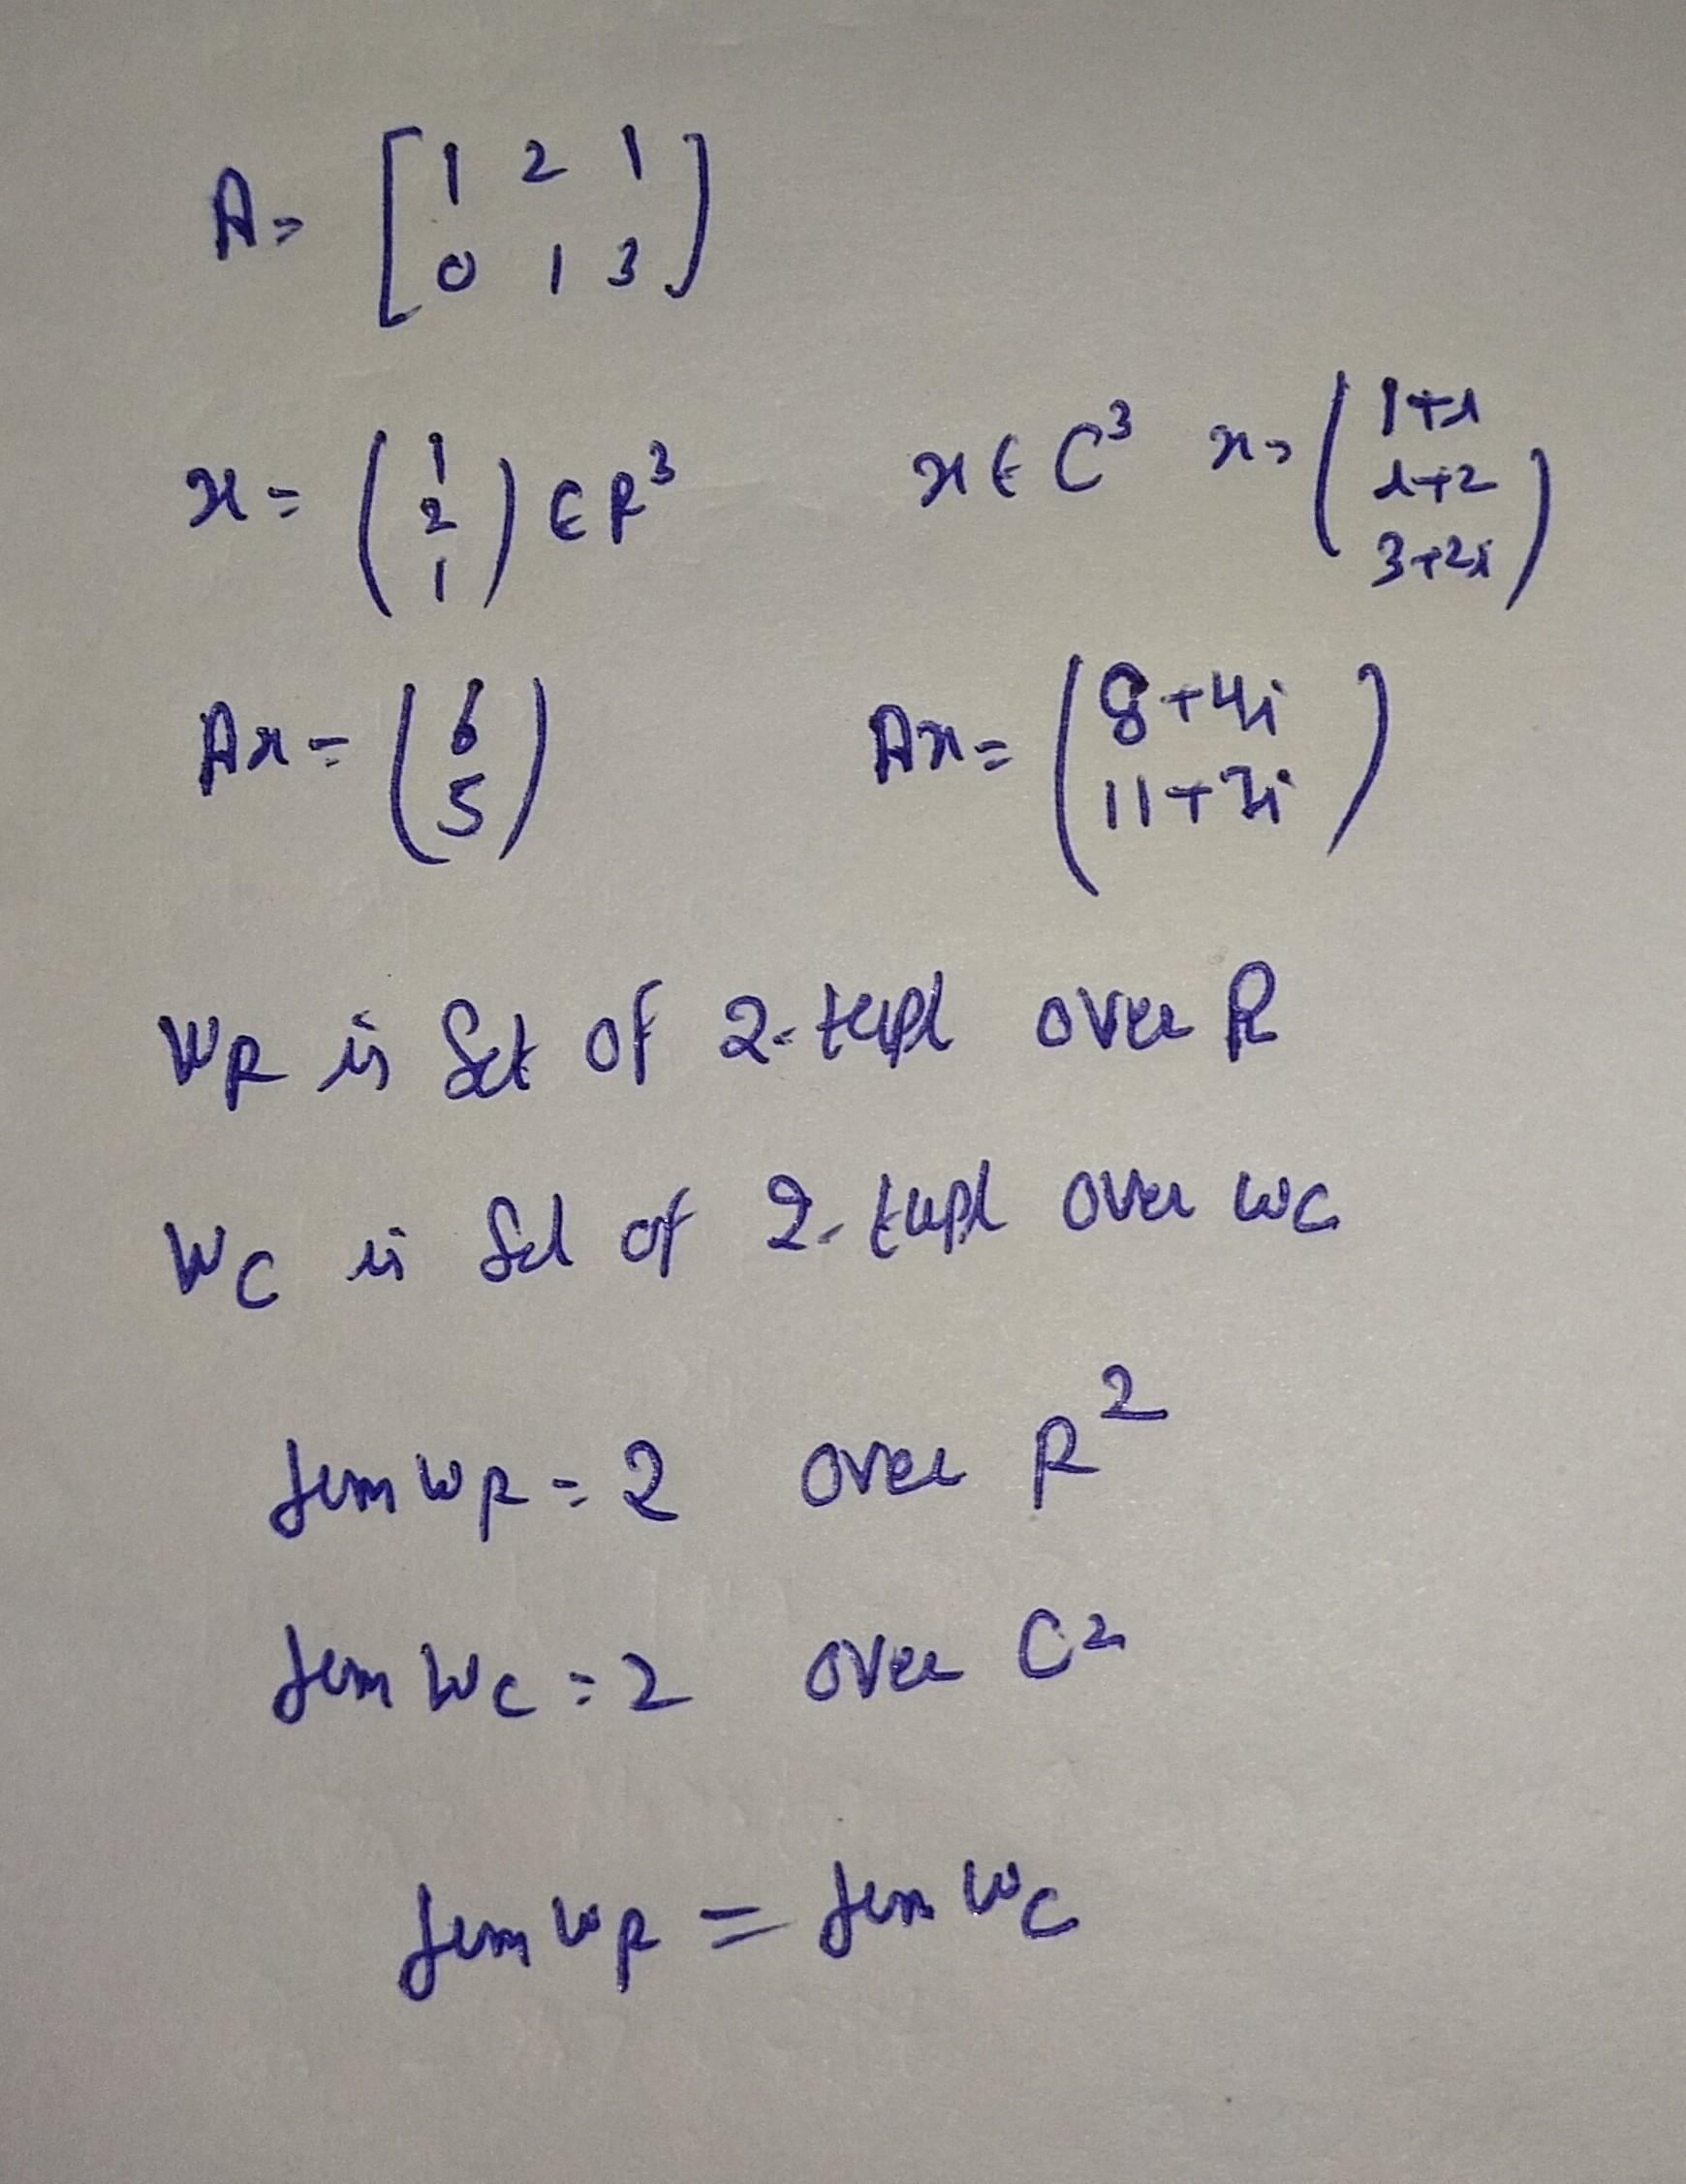 A = [1 2 1
0 1 3]
x = (1 2 1) ∈ R³ x ∈ C³ x = (1+i i+2 3+2i)
Ax = (6 5) Ax = (8+4i 11+7i)
WR is Set of 2-tupl over R
WC is Set of 2-tupl over WC
dim WR = 2 over R²
dim WC = 2 over C²
dim WR = dim WC